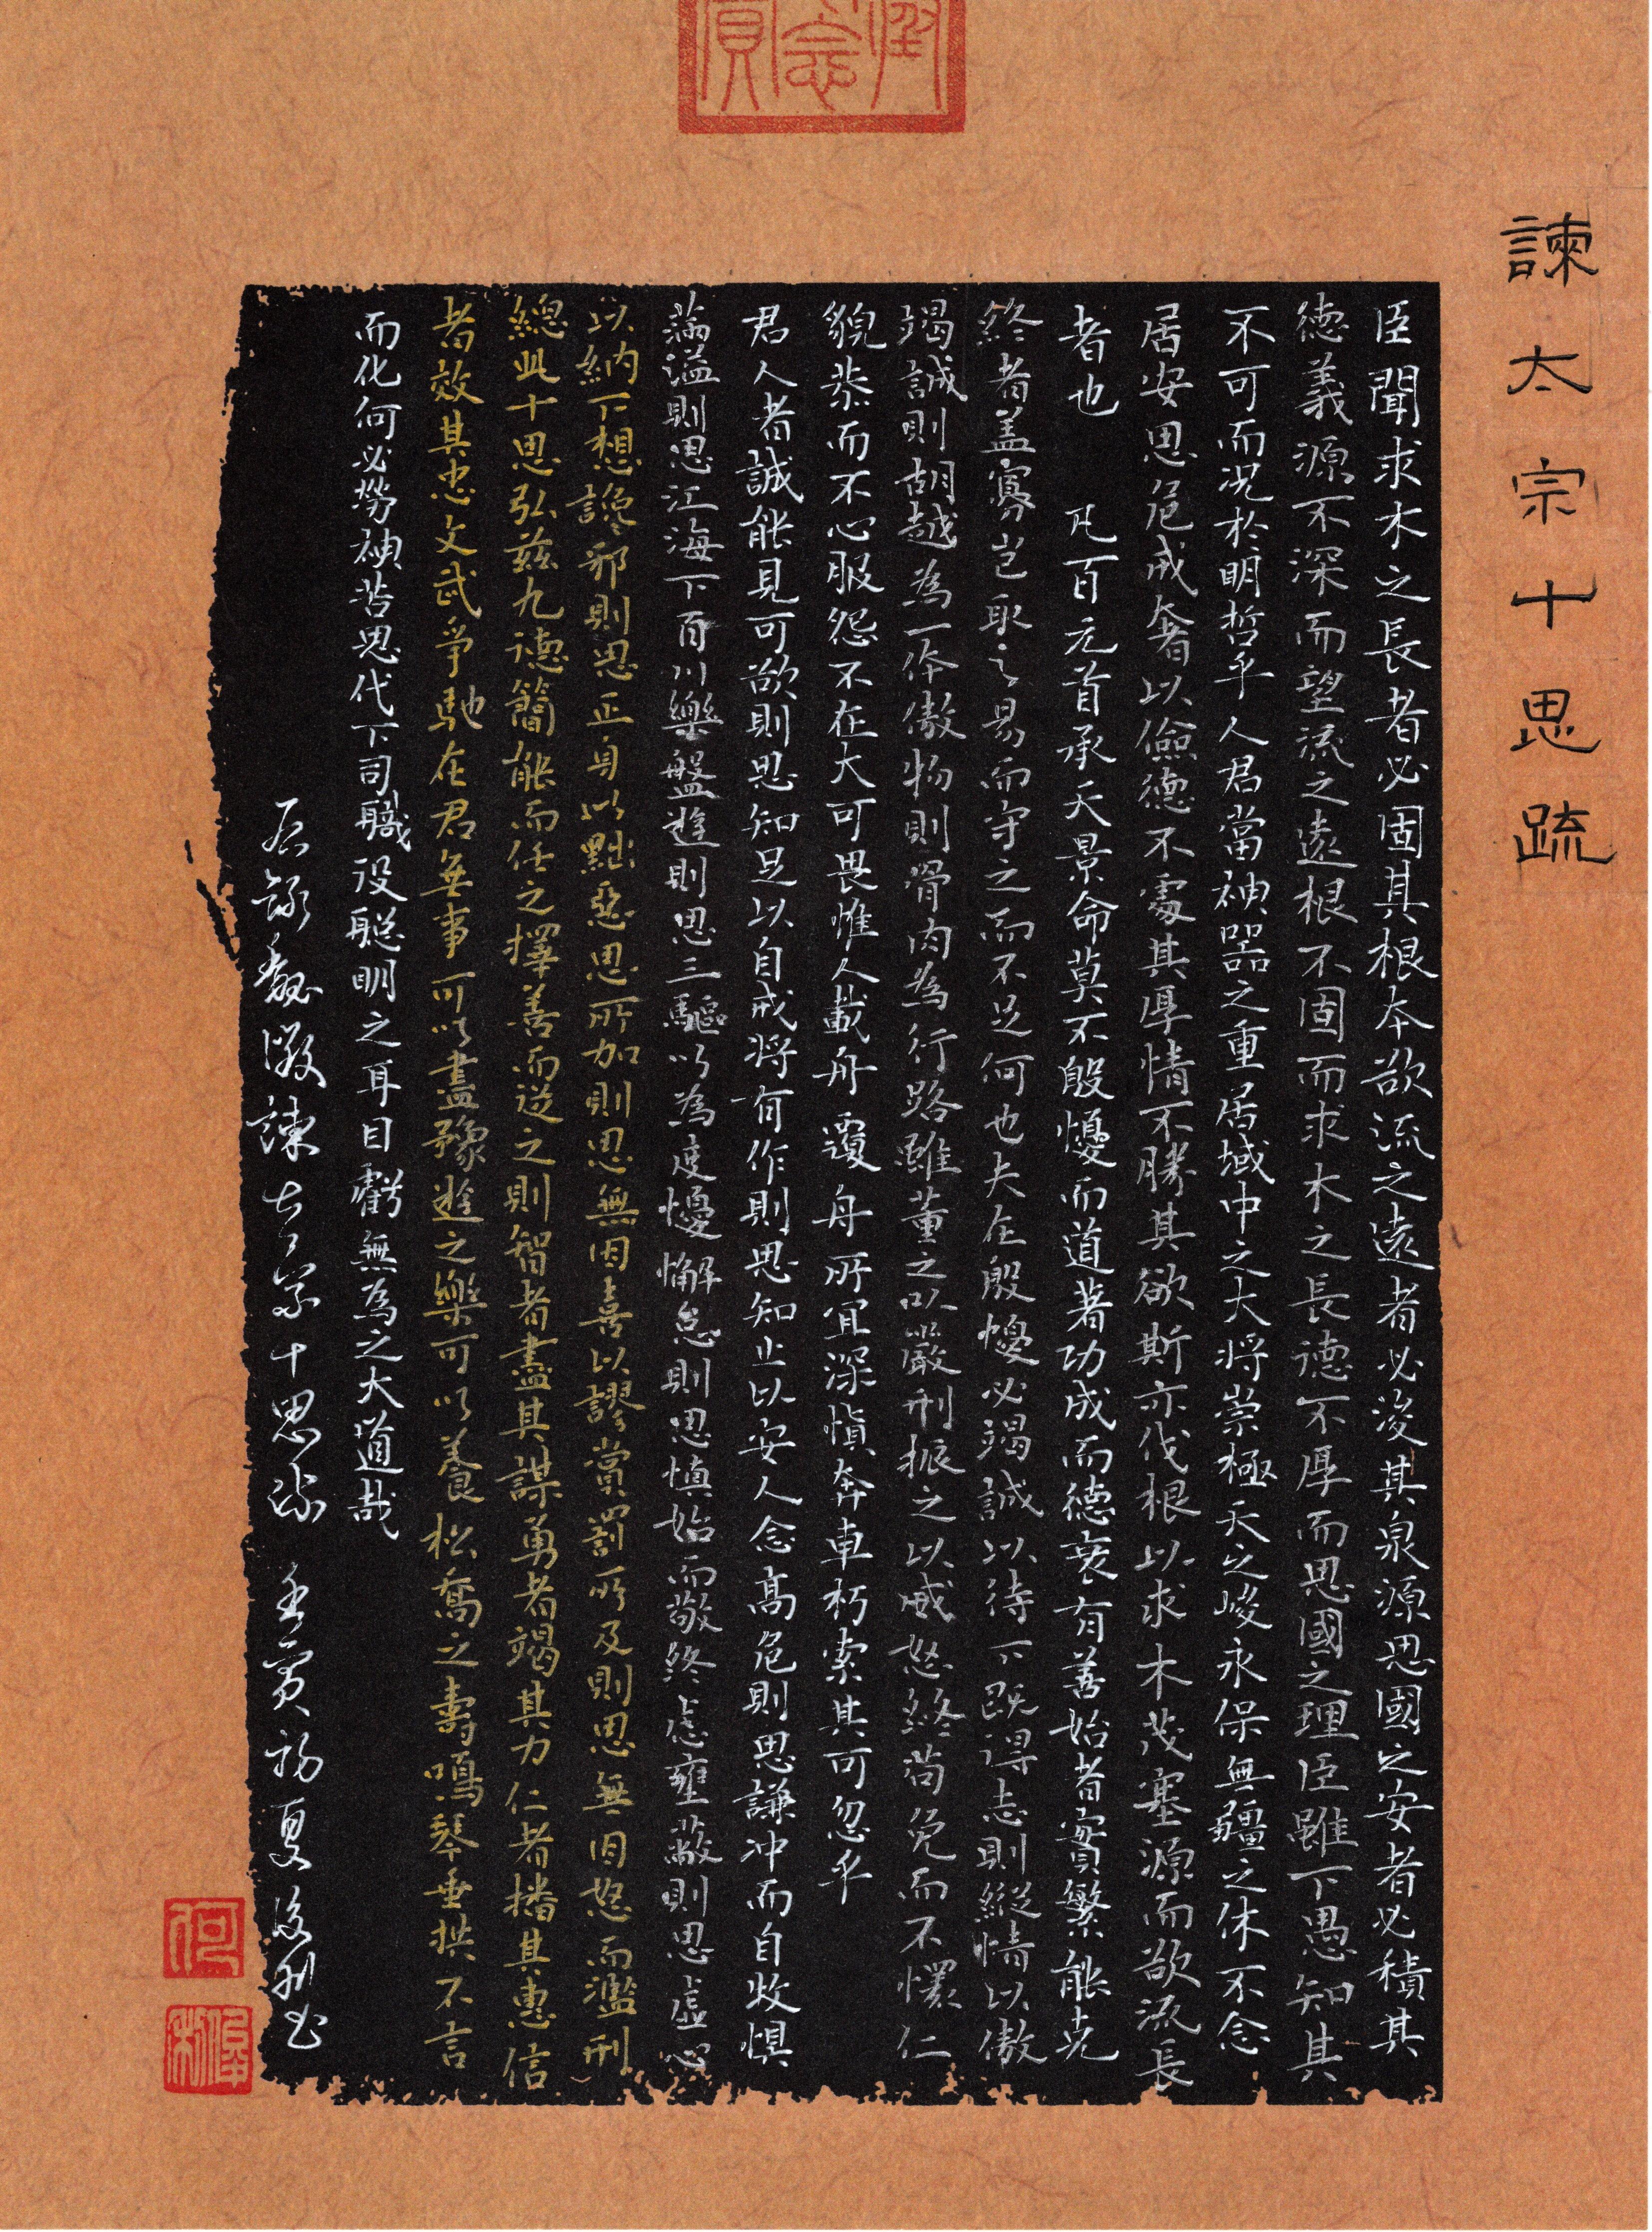 諫太宗十思疏
臣聞求木之長者必固其根本欲流之遠者必浚其泉源思國之安者必積其
德義源不深而望流之遠根不固而求木之長德不厚而思國之理臣雖下愚知其
不可而況於明哲乎人君當神器之重居域中之大將崇極天之峻永保無疆之休不念
居安思危戒奢以儉德不處其厚情不勝其欲斯亦伐根以求木茂塞源而欲流長
者也 凡百元首承天景命莫不殷憂而道著功成而德衰有善始者實繁能克
終者盖寡岂取之易而守之而不足何也夫在殷憂必竭誠以待下既得志則縱情以傲
竭誠則胡越為一体傲物則骨肉為行路雖董之以嚴刑振之以威怒終苟免而不懷仁
貌恭而不心服怨不在大可畏惟人載舟覆舟所宜深慎奔車朽索其可忽乎
君人者誠能見可欲則思知足以自戒將有作則思知止以安人念高危則思謙冲而自牧惧
滿溢則思江海下百川樂盤遊則思三驅以為度憂懈怠則思慎始而敬終慮壅蔽則思虛心
以納下想讒邪則思正身以黜惡思所加則思無因喜以謬賞罰所及則思無因怒而濫刑
總此十思弘茲九德簡能而任之擇善而從之則智者盡其謀勇者竭其力仁者播其惠信
者效其忠文武爭馳在君無事可以盡豫遊之樂可以養松喬之壽鳴琴垂拱不言
而化何必勞神苦思代下司職役聪明之耳目虧無為之大道哉
右錄魏徵諫太宗十思疏 壬寅初夏 俊利书
何